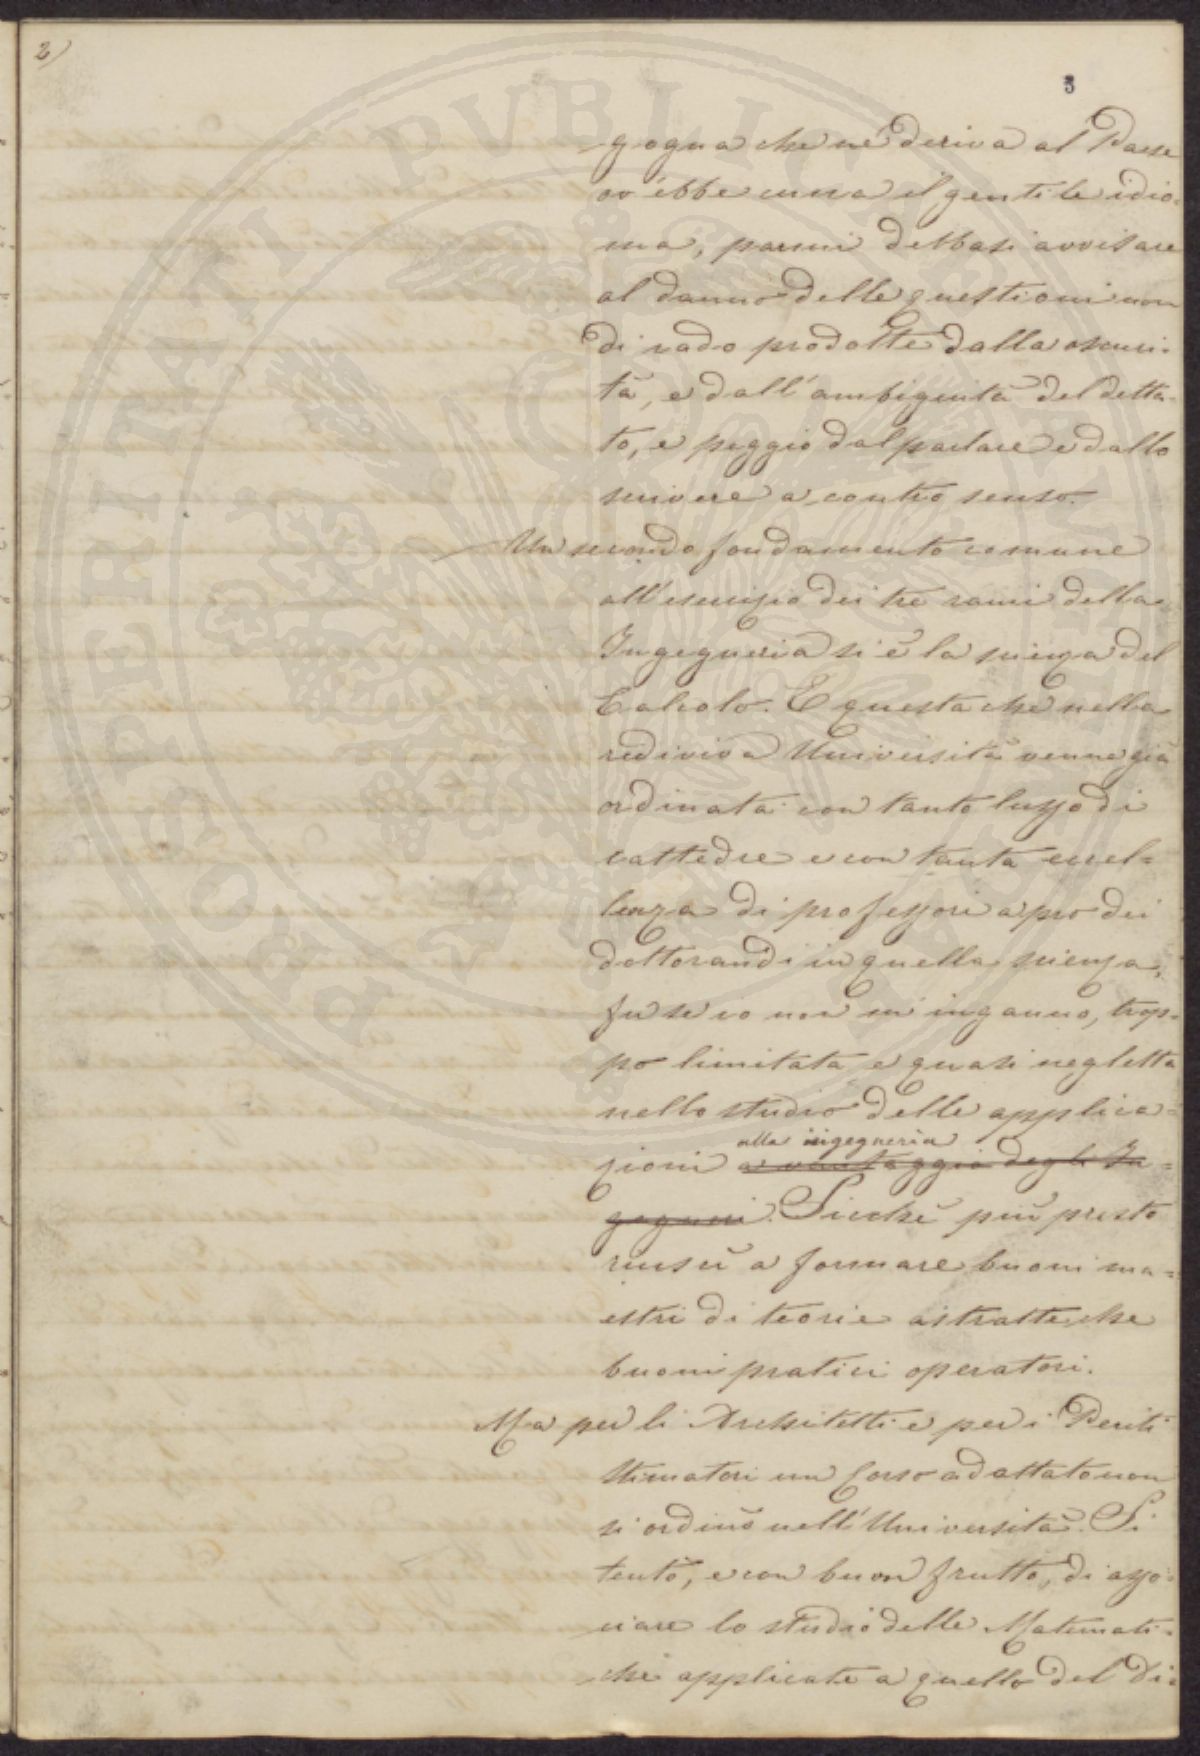 2)
5
gogna che ne deriva al Paese
ov'ebbe cuna il gentile idio-
ma, parmi debbasi avvisare
al danno delle questioni non
di rado prodotte dalla oscuri-
tà, e dall'ambiguità del detta-
to, e peggio dal parlare e dallo
scrivere a contro senso.
Un secondo fondamento comune
all'esercizio dei tre rami della
Ingegneria si è la scienza del
Calcolo. E questa che nella
rediviva Università venne già
ordinata con tanto lusso di
cattedre e con tanta eccel-
lenza di professori a pro dei
dottorandi in quella scienza,
fu se io non m'inganno, trop-
po limitata e quasi negletta
nello studio delle applica-
alla ingegneria
zioni a vantaggio degli In-
gegneri. Sicchè più presto
riuscì a formare buoni ma-
estri di teorie astratte che
buoni pratici operatori.
Ma per li Architetti e per i Periti
Stimatori un Corso adattato non
si ordinò nell'Università. Si
tentò, e con buon frutto, di asso-
ciare lo studio delle Matemati-
che applicate a quello del Di-
PROSPERITATI PVBLICAE